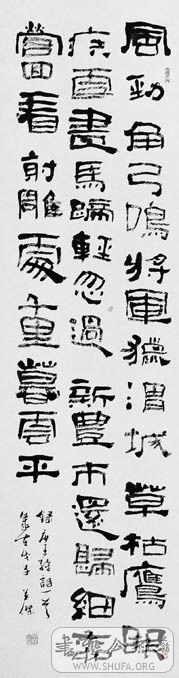 風勁角弓鳴將軍獵渭城草枯鷹眼
疾雪盡馬蹄輕忽過新豐市還歸細柳
營回看射雕處千里暮雲平
錄唐王維詩一首
WWW.SHUFA.ORG